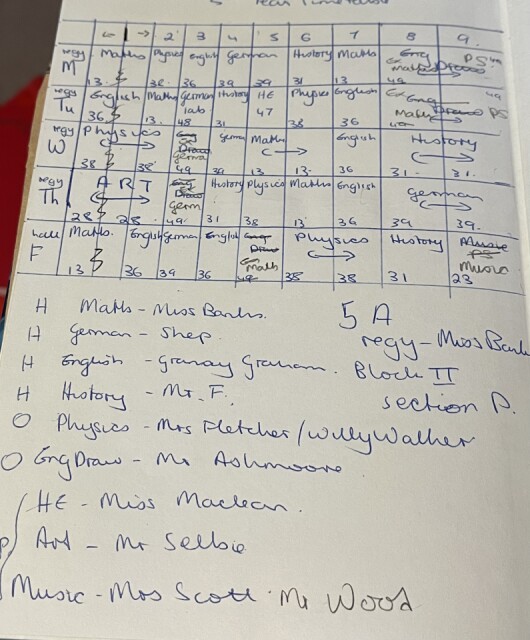 year Timetable
← 1 → 2 3 4 5 6 7 8 9.
regy M Maths Physics English German History Maths Eng PS
13. 38. 36 39 39 31 13 49
regy Tu English Maths German lab History HE Physics English Eng Draw PS
36 13. 48 31 47 38 36
regy W Physics Eng Draw Germ Maths English History
38 38 49 39 13 13. 36 31. 31.
regy Th ART Eng Draw Germ History Physics Maths English German
28 28 49. 31 38 13 36 39 39.
hall F Maths. English German English Eng Draw Maths Physics History Music PS Music
13 36 39 36 49 38 38 31 23
H Maths - Miss Banks.
5 A
H German - Shep.
regy - Miss Bank
H English - Granny Graham.
Block II
H History - Mr. F.
section P.
O Physics - Mrs Fletcher/Willy Walker
O Eng Draw - Mr Ashmoore
HE - Miss Maclean.
P Art - Mr Selbie
Music - Mrs Scott. Mr Wood